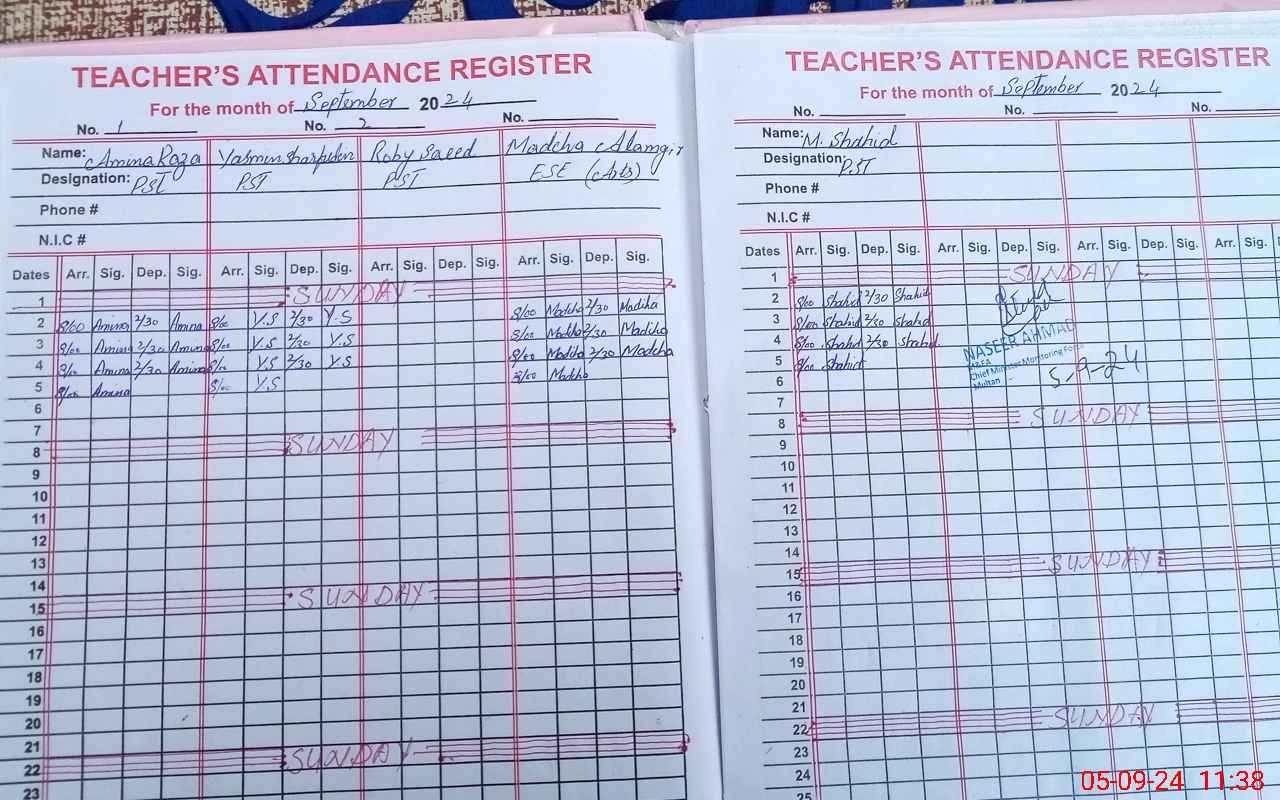 TEACHER'S ATTENDANCE REGISTER
For the month of September 2024
No. 1 No. 2 No.
Name: Amina Raza Yasmin Sharfuden Roby Saeed Madeha Alamgir
Designation: PST PST PST ESE (Arts)
Phone #
N.I.C #
Dates Arr. Sig. Dep. Sig. Arr. Sig. Dep. Sig. Arr. Sig. Dep. Sig. Arr. Sig. Dep. Sig.
1 SUNDAY
2 8/00 Amina 2/30 Amina 8/00 Y.S 2/30 Y.S 8/00 Madiha 2/30 Madiha
3 8/00 Amina 2/30 Amina 8/00 Y.S 2/30 Y.S 8/00 Madiha 2/30 Madiha
4 8/00 Amina 2/30 Amina 8/00 Y.S 2/30 Y.S 8/00 Madiha 2/30 Madeha
5 8/00 Amina 8/00 Y.S 8/00 Madeha
6
7
8 SUNDAY
9
10
11
12
13
14
15 SUNDAY
16
17
18
19
20
21
22 SUNDAY
23
TEACHER'S ATTENDANCE REGISTER
For the month of September 2024
No. No. No.
Name: M. Shahid
Designation: PST
Phone #
N.I.C #
Dates Arr. Sig. Dep. Sig. Arr. Sig. Dep. Sig. Arr. Sig. Dep. Sig. Arr. Sig.
1 SUNDAY
2 8/00 Shahid 2/30 Shahid
3 8/00 Shahid 2/30 Shahid
4 8/00 Shahid 2/30 Shahid
5 8/00 Shahid
NASEER AHMAD
Chief Minister Monitoring Force
Multan
5-9-24
6
7
8 SUNDAY
9
10
11
12
13
14
15 SUNDAY
16
17
18
19
20
21
22 SUNDAY
23
24
25
05-09-24 11:38